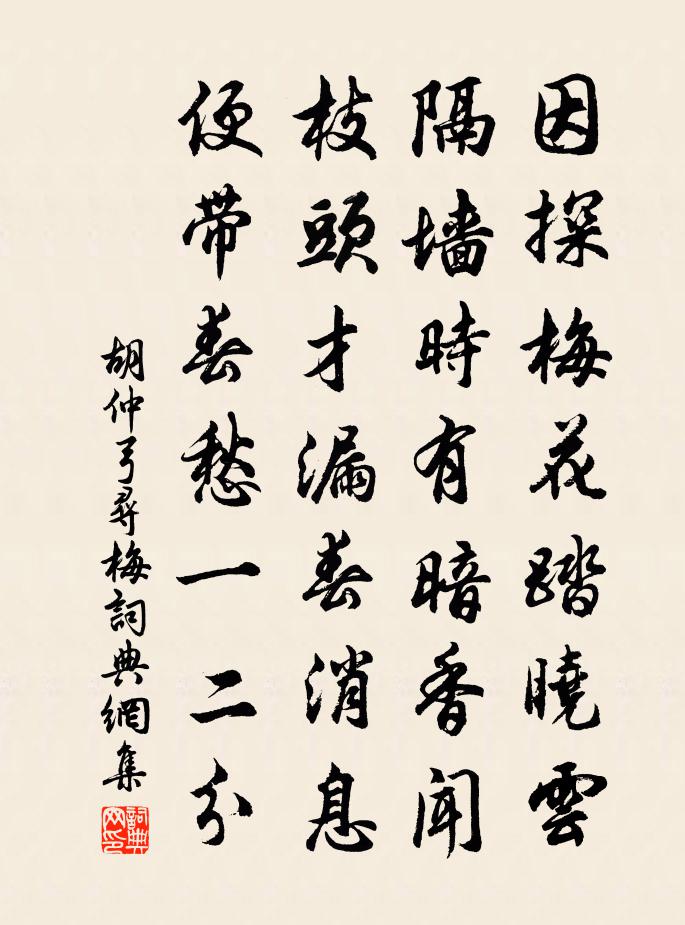 因探梅花踏曉雲
隔墻時有暗香聞
枝頭才漏春消息
便带春愁一二分
胡仲弓尋梅詞典網集
詞典网印